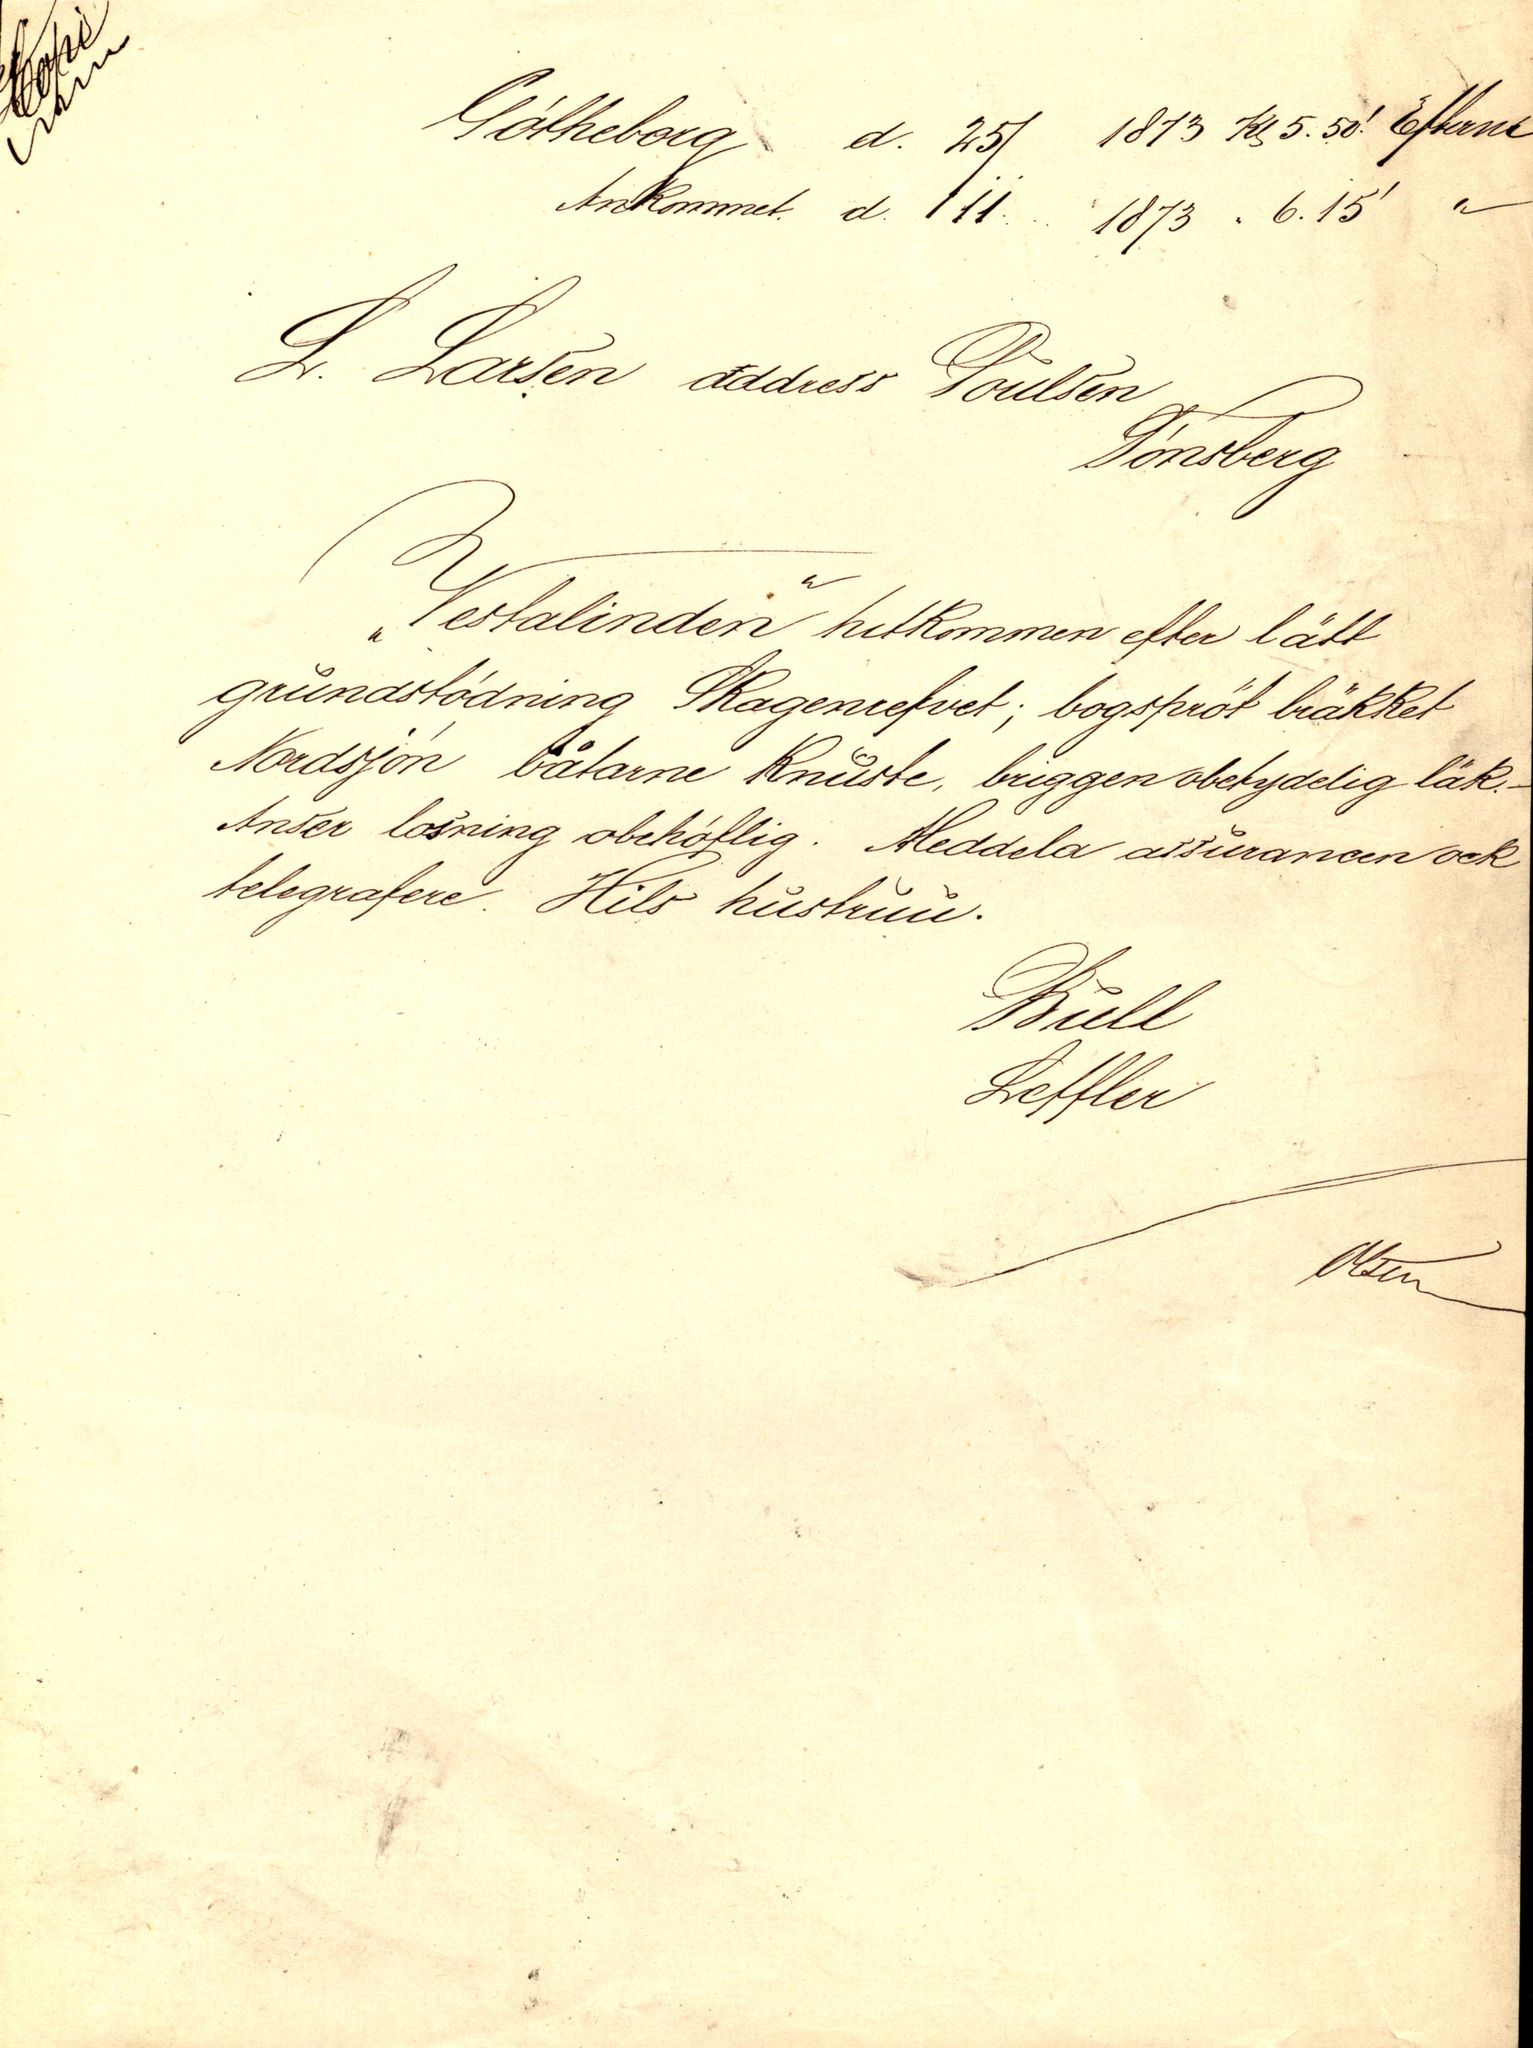 Kopi
Götheborg d. 25/11 1873 Kl 5.50' Efterm
Ankommet d. " 1873 " 6.15' "
L. Larsen address Poulsen
Tönsberg
„Vestalinden" hitkommen efter lätt
grundstödning Skagenrefvet; bogspröt bräkket
Nordsjön båtarne knuste, briggen obetydelig läk.-
Anser losning obehöflig. Meddela assurancen ock
telegrafere. Hils hustruu.
Bull
Leffler
Olsen